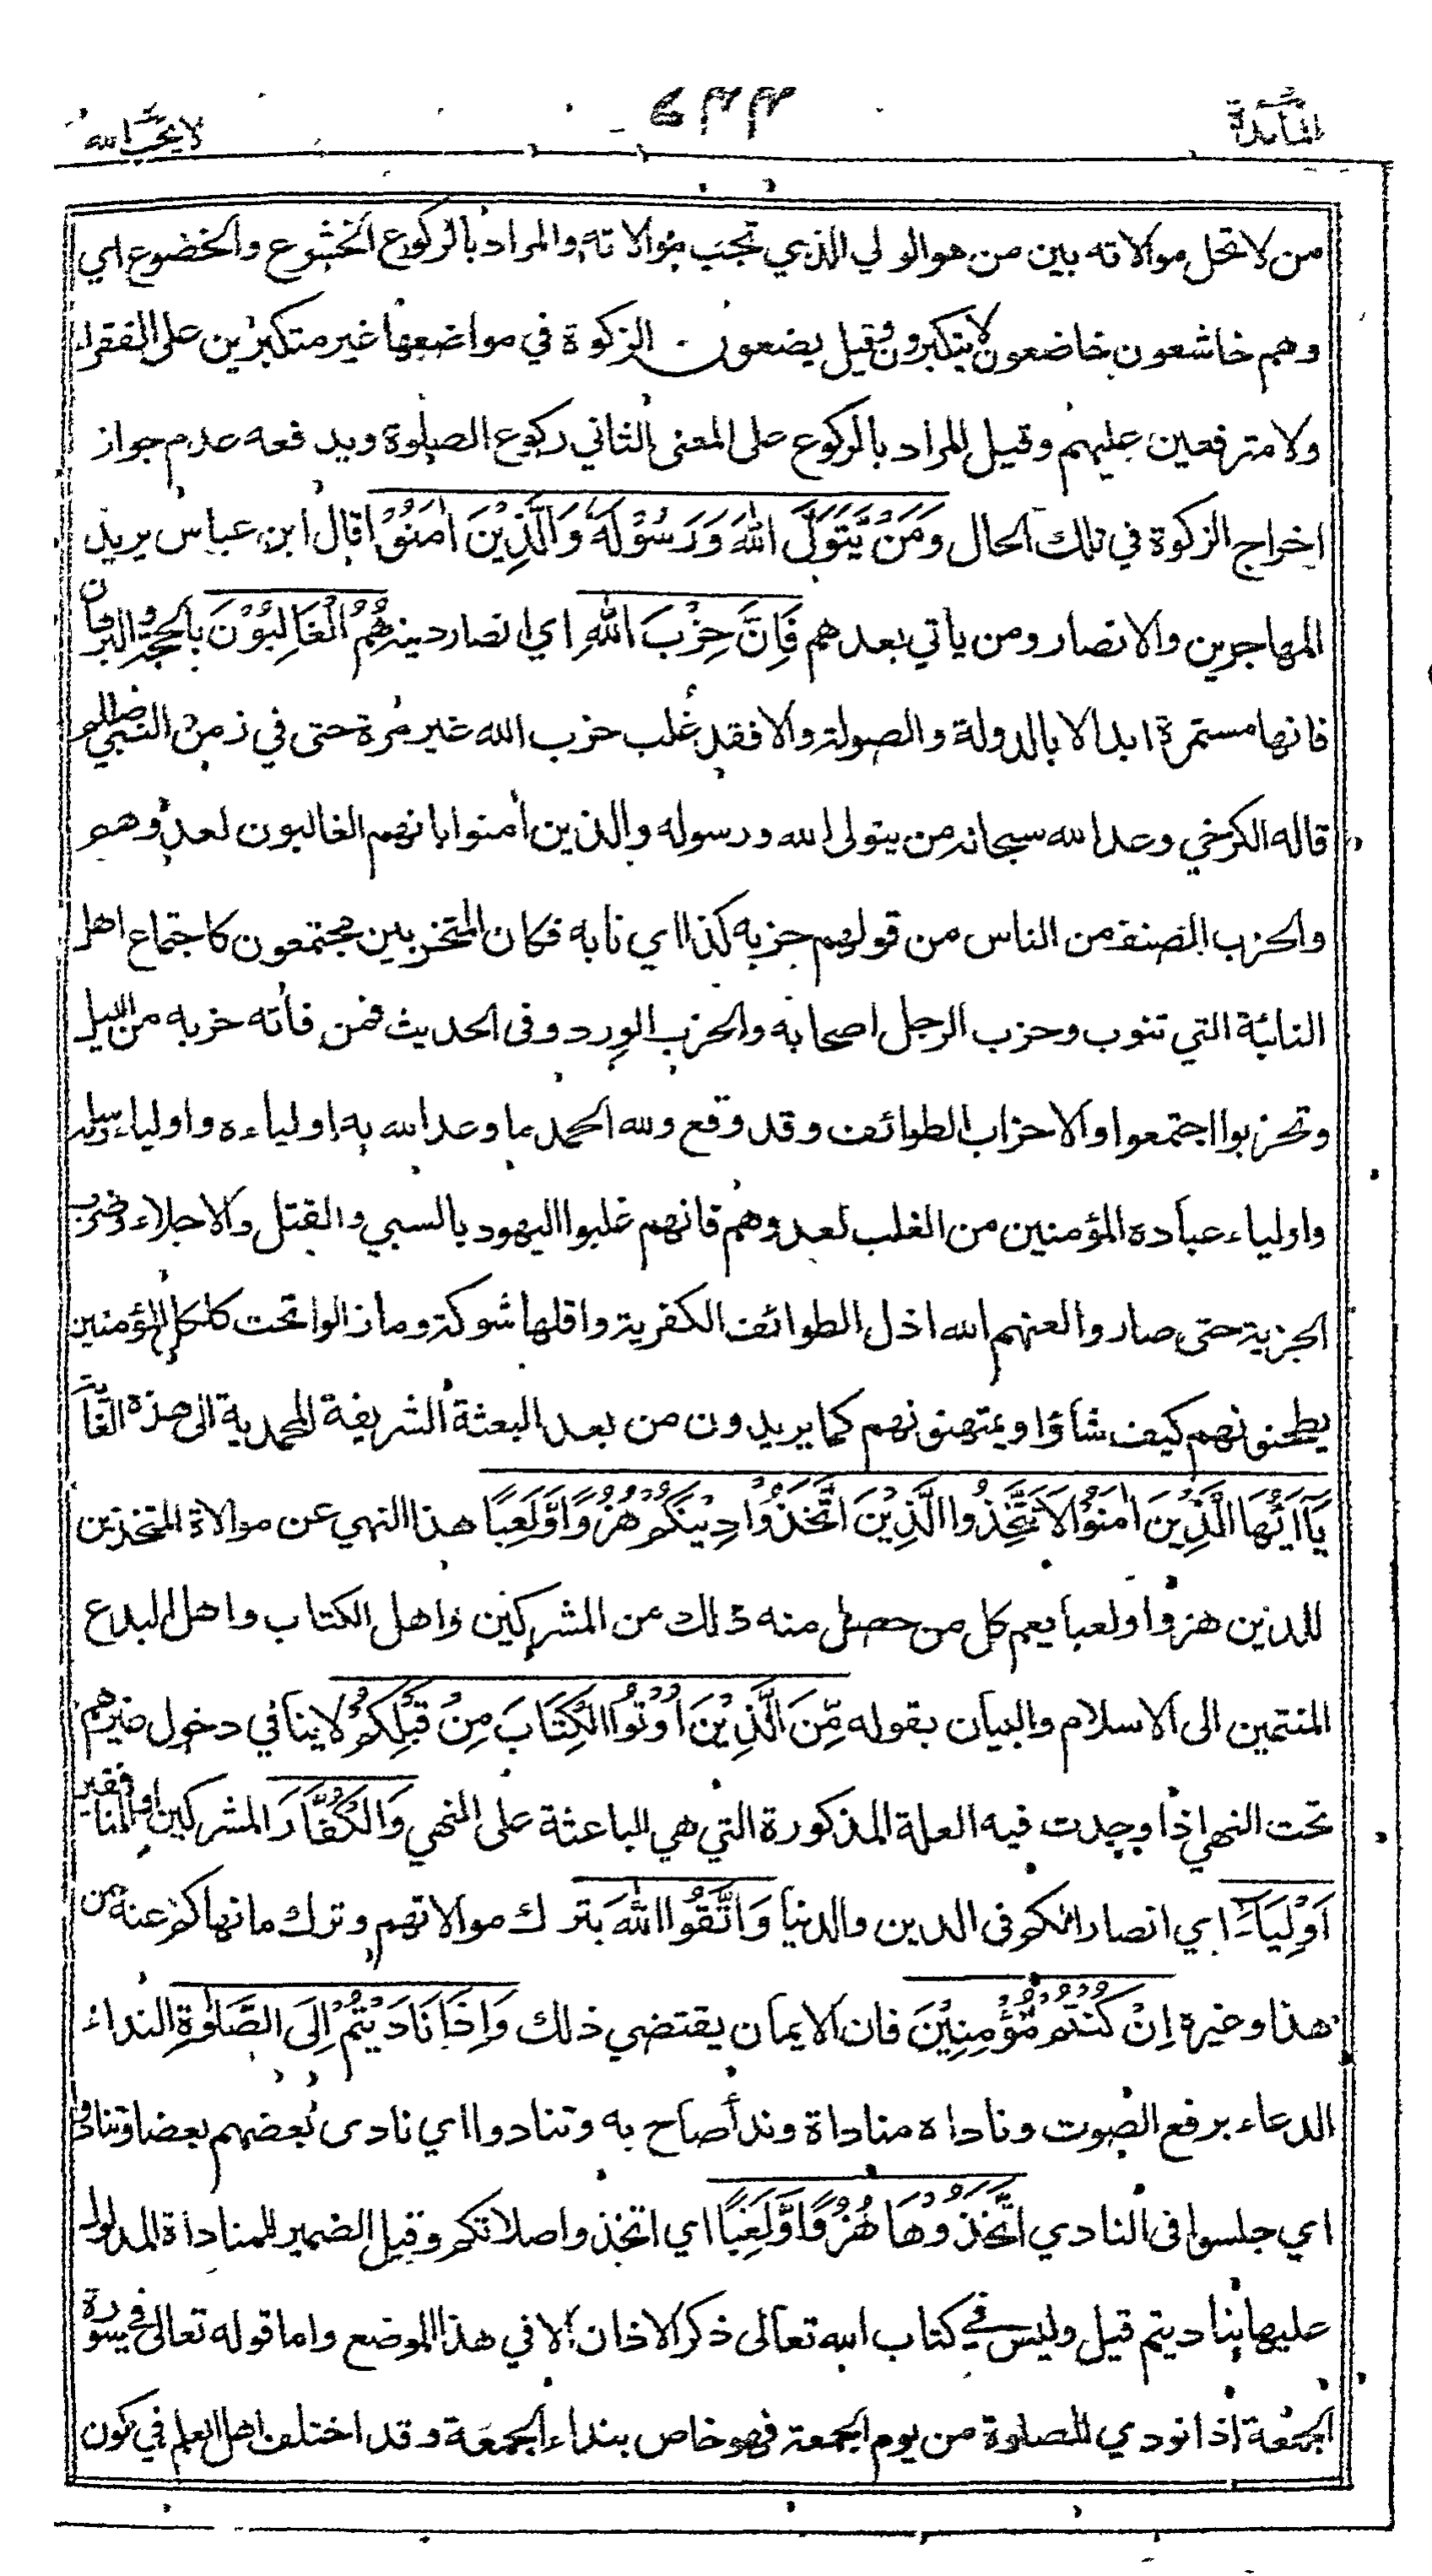 المآئدة
لا يحب الله
من لا تحل موالاته بين من هو الولي الذي تجب موالاته والمراد بالركوع الخشوع والخضوع اي
وهم خاشعون خاضعون لا يتكبرون وقيل يضعون الزكوة في مواضعها غير متكبرين على الفقراء
ولا مترفعين عليهم وقيل المراد بالركوع على المعنى الثاني ركوع الصلوة ويدفعه عدم جواز
اخراج الزكوة في تلك الحال وَمَنْ يَّتَوَلَّى اللّٰهَ وَرَسُوْلَهٗ وَالَّذِيْنَ اٰمَنُوْا قال ابن عباس يريد
المهاجرين والانصار ومن ياتي بعدهم فَاِنَّ حِزْبَ اللّٰهِ اي انصار دينه هُمُ الْغَالِبُوْنَ بالحجة والبرهان
فانها مستمرة ابدا لا بالدولة والصولة والا فقد غُلب حزب الله غير مرة حتى في زمن النبي صللم
قاله الكرخي وعد الله سبحانه من يتولى الله ورسوله والذين اٰمنوا بانهم الغالبون لعدوهم
والحزب الصنف من الناس من قولهم حزبه كذا اي نابه فكان المتحزبين مجتمعون كاجتماع اهل
النائبة التي تنوب وحزب الرجل اصحابه والحزب الورد وفى الحديث فمن فاته حزبه من الليل
وتحزبوا اجتمعوا والاحزاب الطوائف وقد وقع ولله الحمد ما وعد الله به اولياءه واولياء رسله
واولياء عباده المؤمنين من الغلب لعدوهم فانهم غلبوا اليهود بالسبي والقتل والاجلاء وضرب
الجزية حتى صاروا لعنهم الله اذل الطوائف الكفرية واقلها شوكة وما زالوا تحت كلكل المؤمنين
يطحنونهم كيف شاؤا ويمتهنونهم كما يريدون من بعد البعثة الشريفة المحمدية الى هذه الغاية
يَآاَيُّهَا الَّذِيْنَ اٰمَنُوْا لَا تَتَّخِذُوا الَّذِيْنَ اتَّخَذُوْا دِيْنَكُمْ هُزُوًا وَّلَعِبًا هذا النهي عن موالاة المتخذين
للدين هزوا ولعبا يعم كل من حصل منه ذلك من المشركين واهل الكتاب واهل البدع
المنتمين الى الاسلام والبيان بقوله مِّنَ الَّذِيْنَ اُوْتُوا الْكِتَابَ مِنْ قَبْلِكُمْ لا ينافي دخول غيرهم
تحت النهي اذا وجدت فيه العلة المذكورة التي هي الباعثة على النهي وَالْكُفَّارَ المشركين او المنافقين
اَوْلِيَآءَ اي انصارا لكم فى الدين والدنيا وَاتَّقُوا اللّٰهَ بترك موالاتهم وترك ما نهاكم عنه من
هذا وغيره اِنْ كُنْتُمْ مُّؤْمِنِيْنَ فان الايمان يقتضي ذلك وَاِذَا نَادَيْتُمْ اِلَى الصَّلٰوةِ النداء
الدعاء برفع الصوت وناداه مناداة وندأ صاح به وتنادوا اي نادى بعضهم بعضا وتنادوا
اي جلسوا فى النادي اتَّخَذُوْهَا هُزُوًا وَّلَعِبًا اي اتخذوا صلاتكم وقيل الضمير للمناداة المدلول
عليها بناديتم قيل وليس في كتاب الله تعالى ذكر الاذان الا في هذا الموضع واما قوله تعالى في سورة
الجمعة اذا نودي للصلوة من يوم الجمعة فهو خاص بنداء الجمعة وقد اختلف اهل العلم في كون